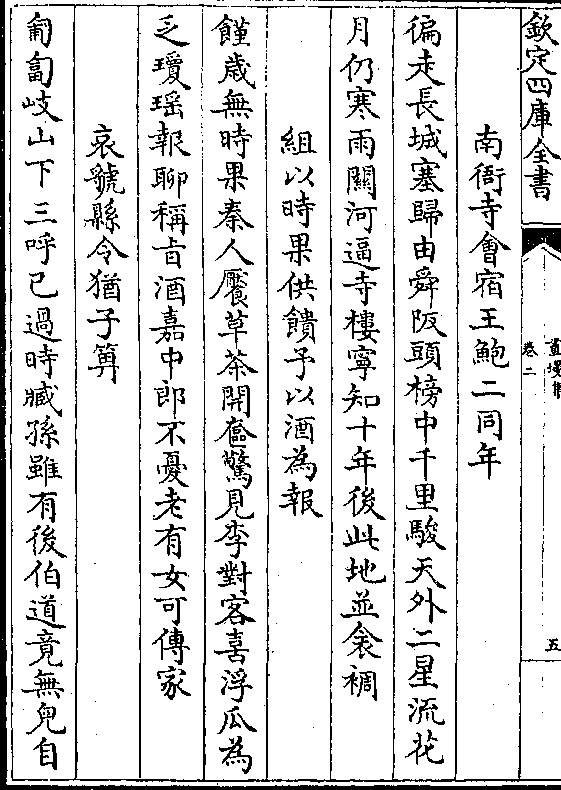 欽定四庫全書
畫墁集
卷二
五
南衙寺會宿王鮑二同年
徧走長城塞歸由舜阪頭榜中千里駿天外二星流花
月仍寒雨關河逼寺樓寧知十年後此地並衾裯
組以時果供饋予以酒為報
饉歲無時果秦人饜草茶開奩驚見李對客喜浮瓜為
乏瓊瑤報聊稱旨酒嘉中郎不憂老有女可傳家
哀虢縣令猶子筭
匍匐岐山下三呼已過時臧孫雖有後伯道竟無兒自